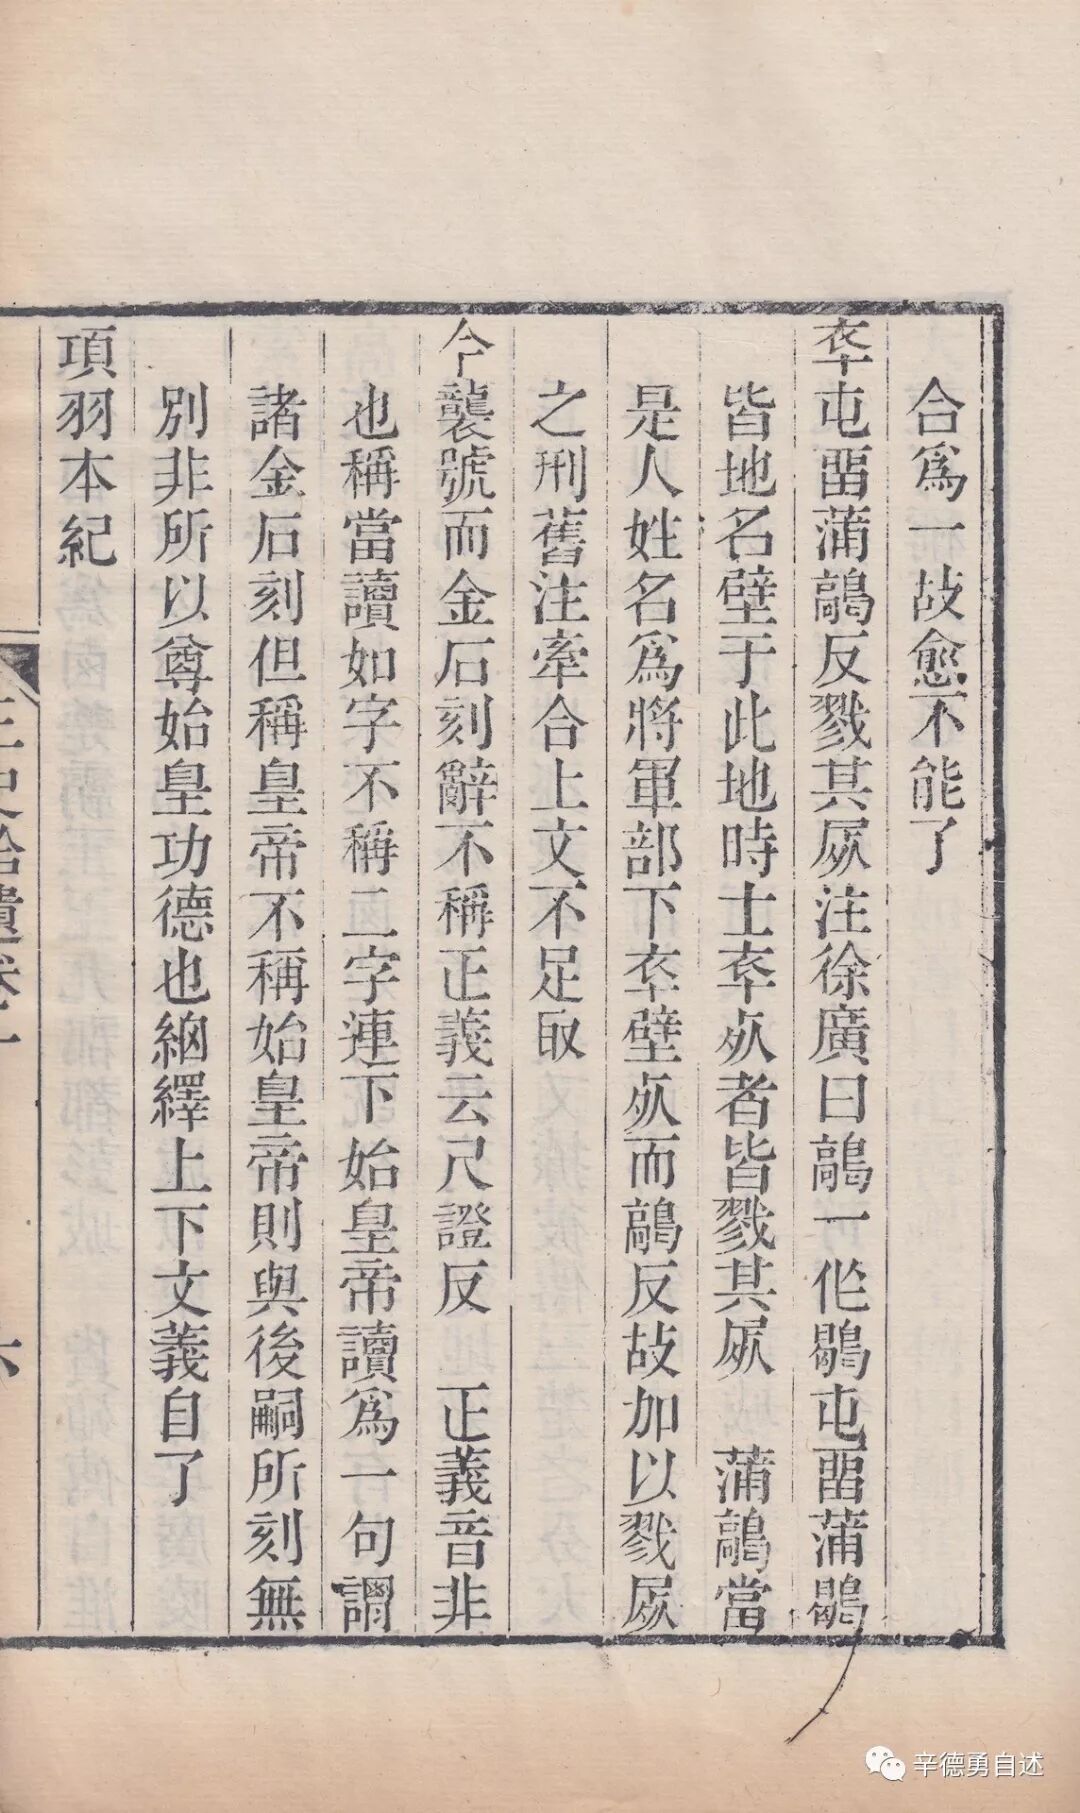 合爲一故愈不能了
卒屯畱蒲鶮反戮其屍注徐廣曰鶮一作鶡屯畱蒲鶡
皆地名壁于此地時士卒死者皆戮其屍　蒲鶮當
是人姓名爲將軍部下卒壁死而鶮反故加以戮屍
之刑舊注牽合上文不足取
今襲號而金石刻辭不稱正義云尺證反　正義音非
也稱當讀如字不稱二字連下始皇帝讀爲一句謂
諸金石刻但稱皇帝不稱始皇帝則與後嗣所刻無
別非所以尊始皇功德也紬繹上下文義自了
項羽本紀
三史拾遺卷一
六
辛德勇自述